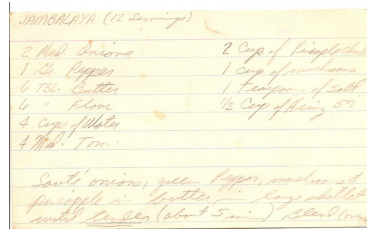 JAMBALAYA (12 Servings)
2 Med. Onions
1 Gr. Pepper
6 TBL. Butter
6 " Flour
4 Cups of Water
4 Med. Tom.
2 Cup of Pineaple
1 cup of mushrooms
1 Teaspoon of Salt
1/2 Cup of Heinz 57
Sauté onions, green Pepper, mushrooms &
pineapple in butter in large skillet
until tender (about 5 min) Blend